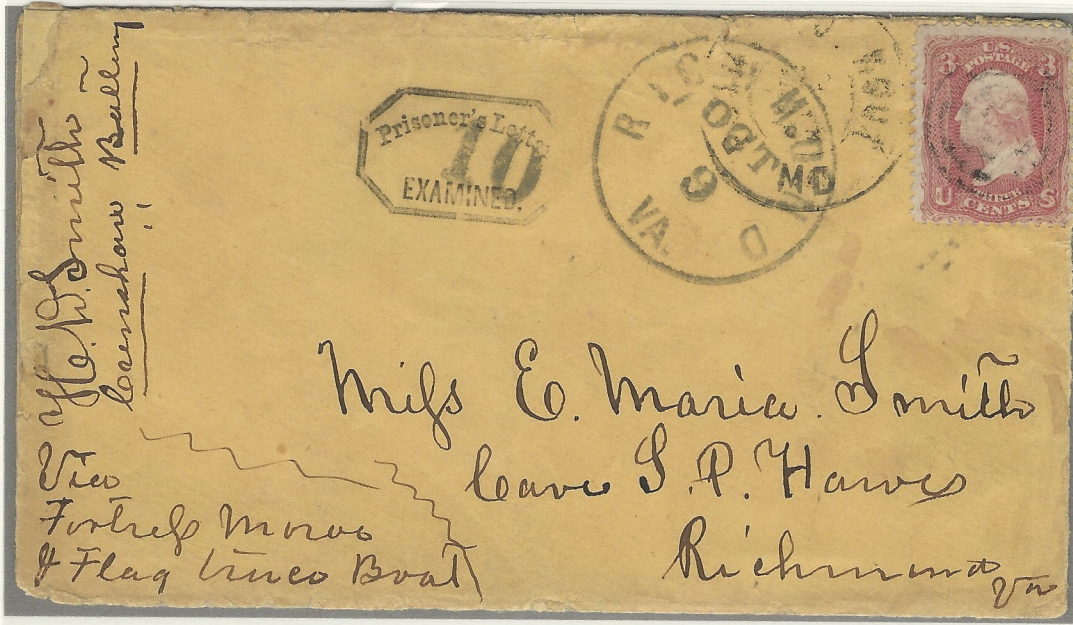 H. W. Smith
Prisoner's Letter
10
EXAMINED.
RICHMOND
OCT
9
VA.
MD
3 U.S. POSTAGE 3
U THREE CENTS S
Miss E. Maria. Smith
Care S. P. Hawes
Richmond
Va
Via
Fortress Monroe
& Flag truce Boat